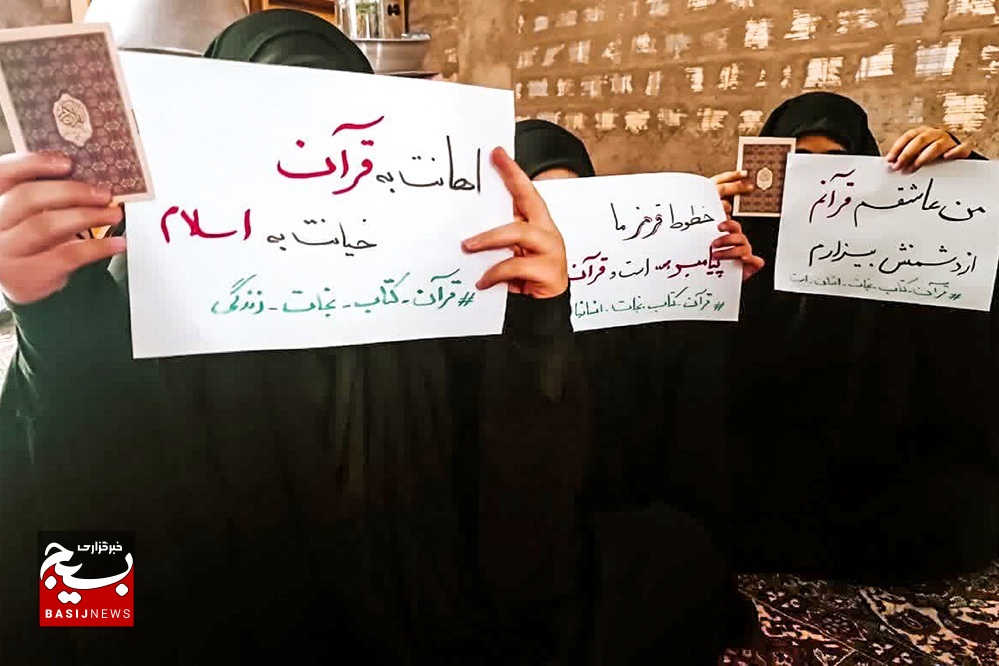 اهانت به قرآن
خیانت به اسلام
#قرآن_کتاب_نجات_زندگی
خطوط قرمز ما
پیامبر است و قرآن
#قرآن_کتاب_نجات_انسانیا
من عاشقم قرآنم
از دشمنش بیزارم
#قرآن_کتاب_نجات_انسان_است
خبرگزاری
بسیج
BASIJNEWS